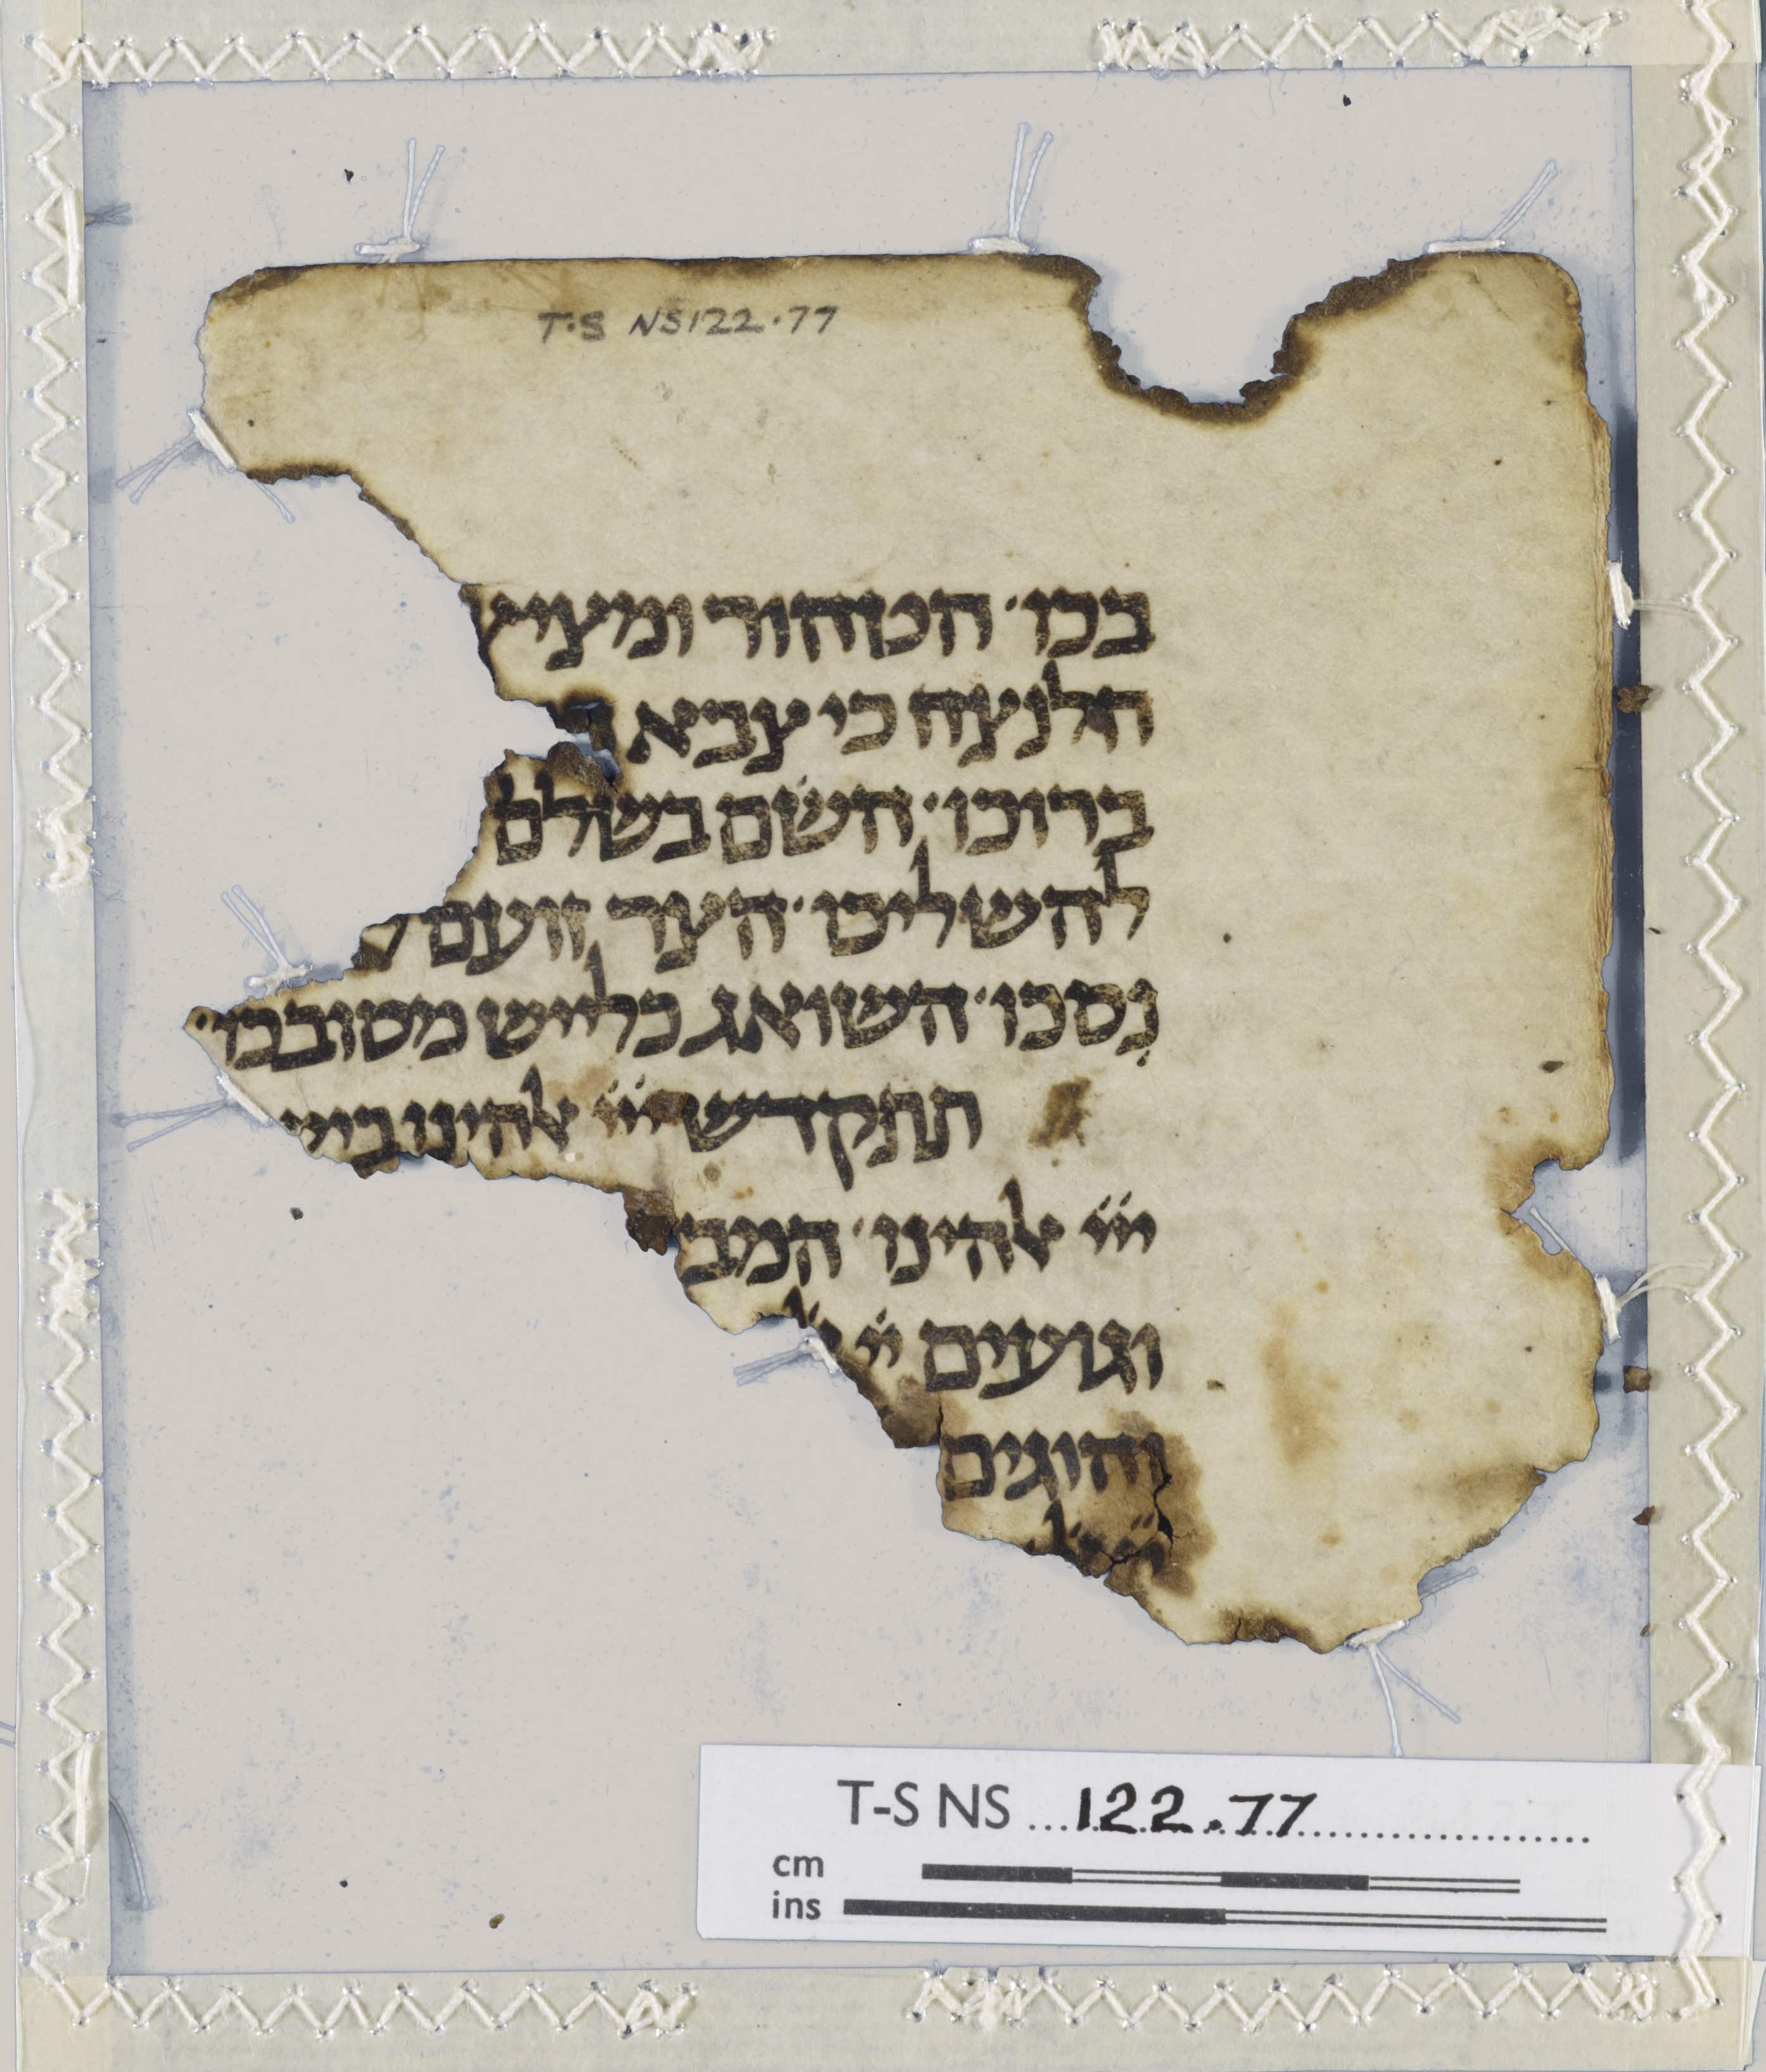 T-S NS 122.77
בכו· הטהור ומציץ
הלנצח כי צבא
ברוכו· השם בשולם
להשליכו· הצר זועם
נסכו· השואג כליש מסובכו·
תתקדש ייי אלהינו
ייי אלהינו· המב
וגועים
והוגים
T-S NS ...122.77
cm
ins